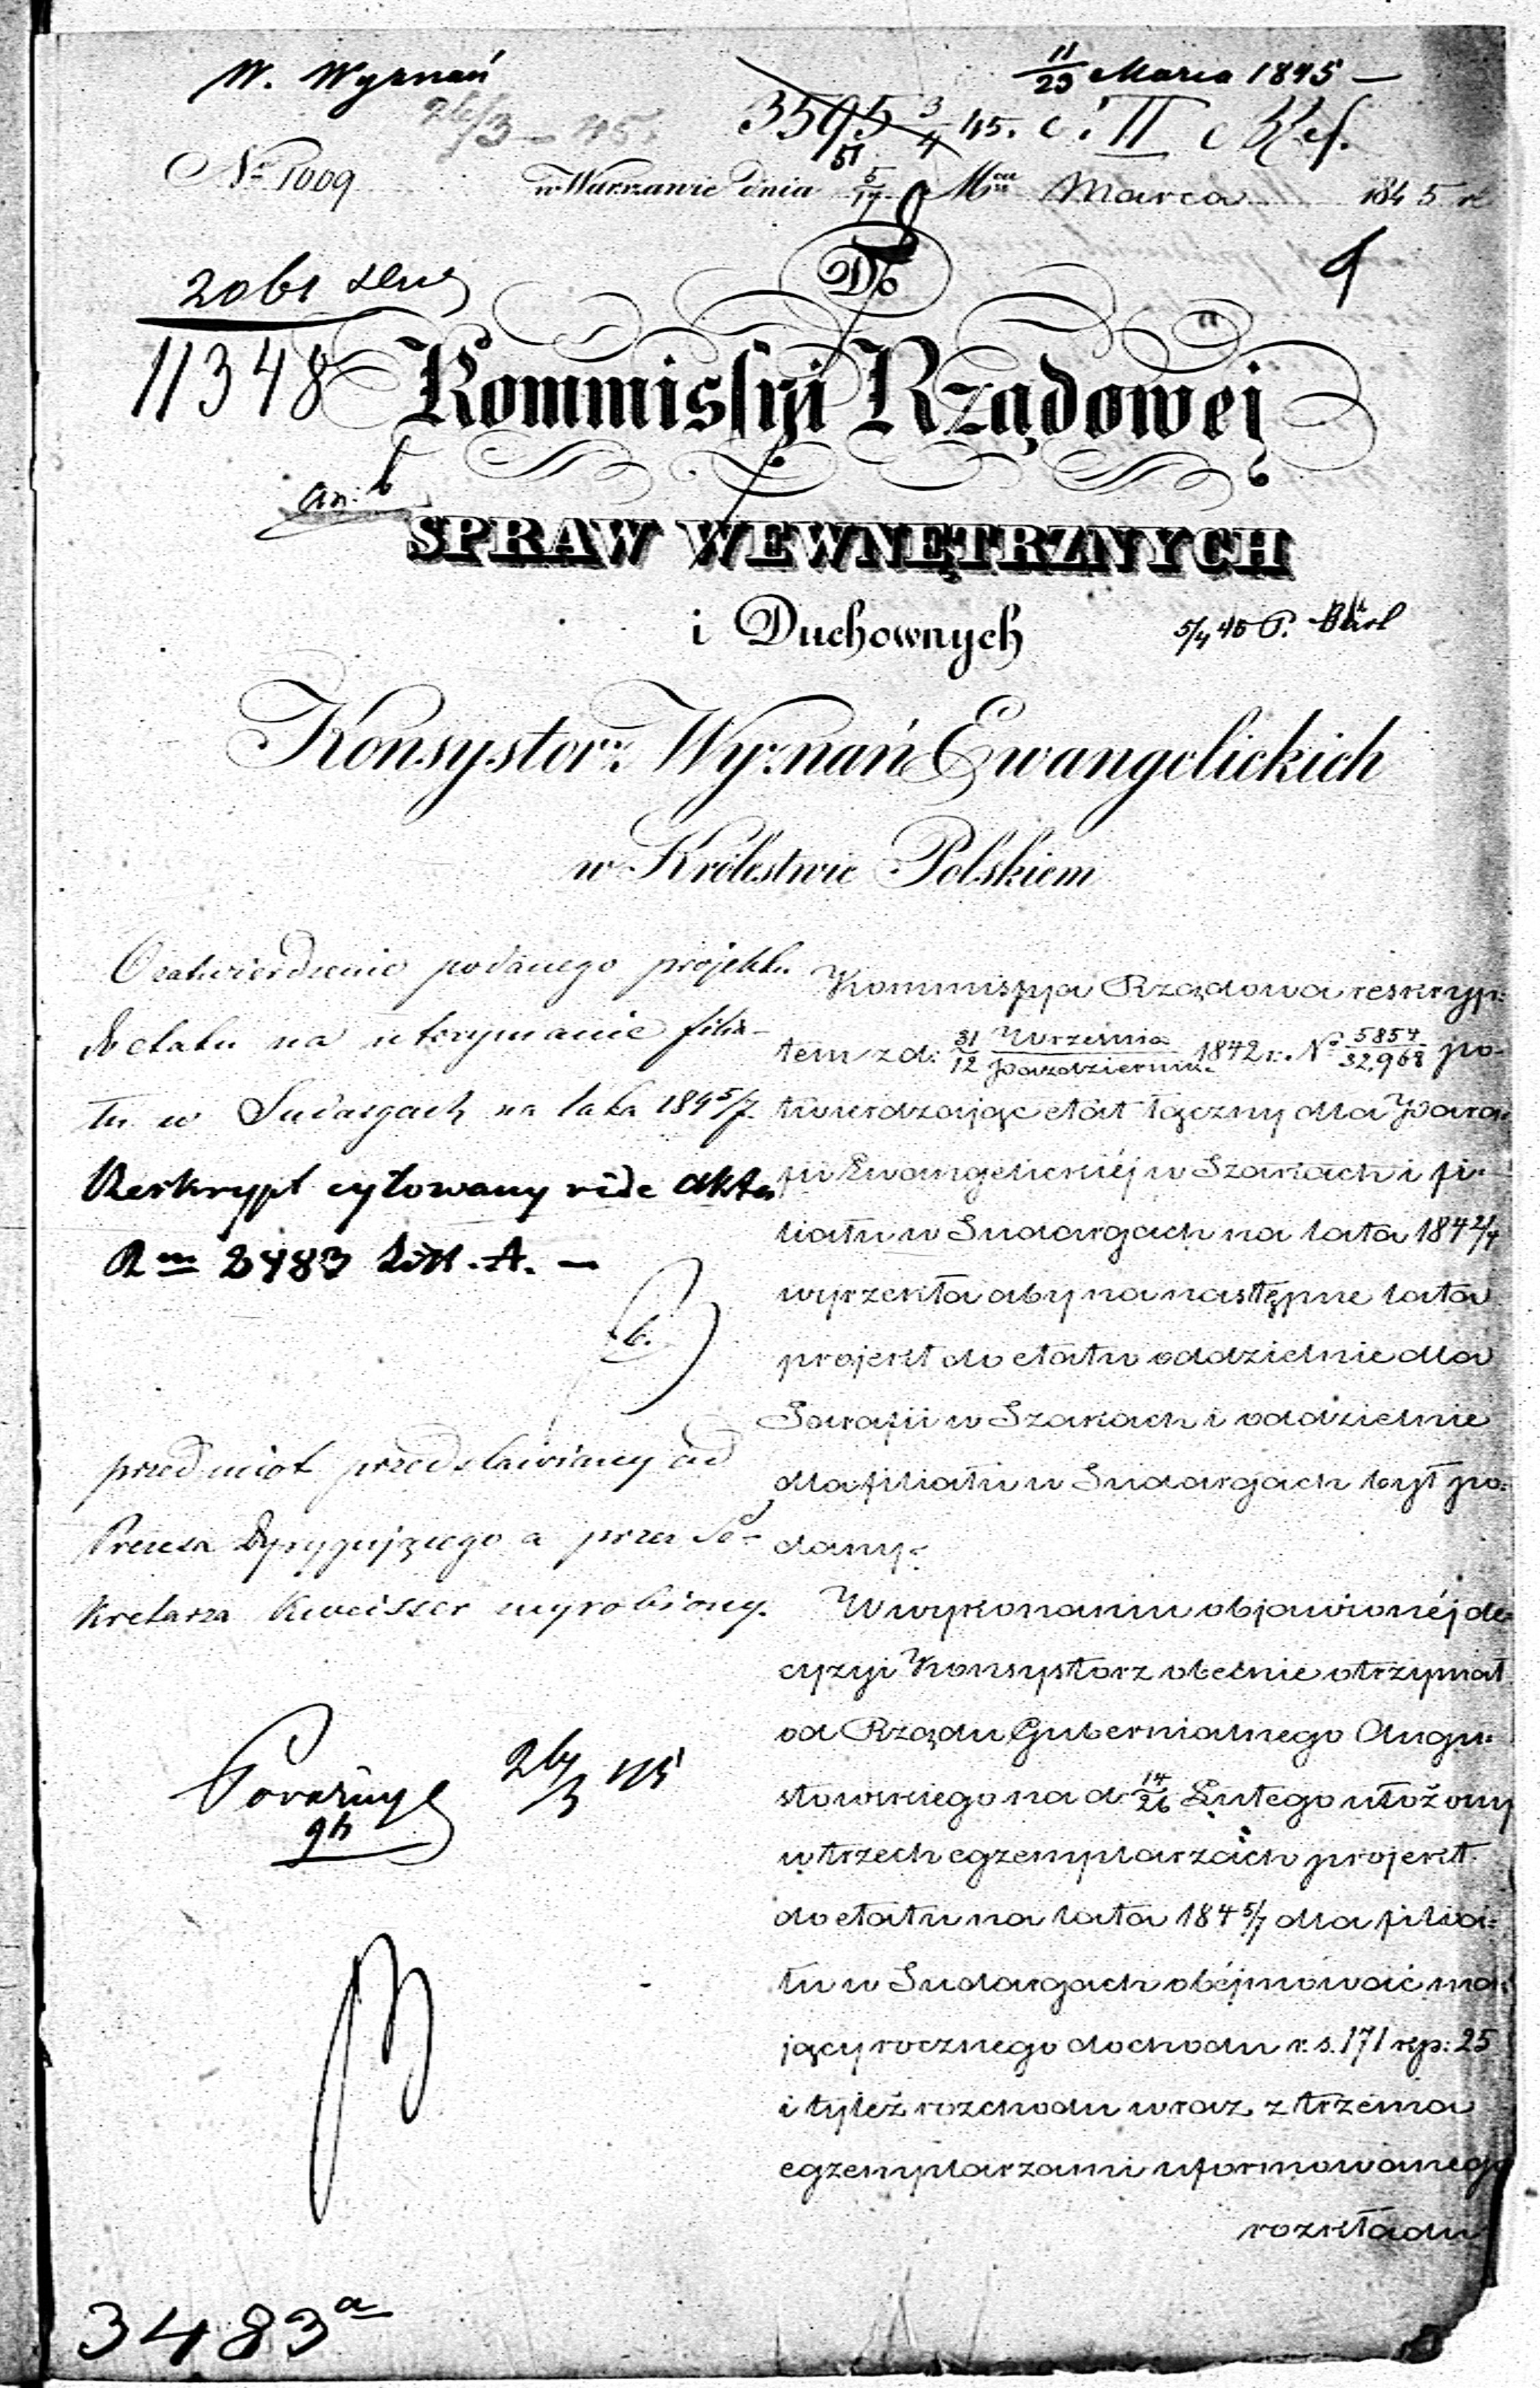 W. Wyznań
11/23 Marca 1845 —
26/3 – 45.
3595 3/4 45. II Ref.
51
Nr 1009
w Warszawie dnia 5/17 Mca Marca 1845 r.
2061
11348
Do
Kommissyi Rządowej
SPRAW WEWNĘTRZNYCH
i Duchownych
5/4 45 P.
Konsystorz Wyznań Ewangelickich
w Królestwie Polskiem
O zatwierdzenie podanego projektu
do etatu na utrzymanie filia-
łu w Sudargach na lata 1845/7
Reskrypt cytowany vide akta
2483 Litt. A. —
b.
przedmiot przedstawiany od
Prezesa Dyrygującego a przez Se-
kretarza wyrobiony.
26/3 45
3483 a
Kommissya Rządowa reskryp-
tem z d. 31/12 Września/Październik. 1842 r. No 5854/32,968 po-
twierdzając etat łączny dla Para-
fii Ewangelickiéj w Szakach i fi-
liału w Sudargach na lata 1842/4
wyrzekła aby na następne lata
projekt do etatu oddzielnie dla
Parafii w Szakach i oddzielnie
dla filiału w Sudargach był po-
dany.
W wykonaniu objawionéj de-
cyzyi Konsystorz obecnie otrzymał
od Rządu Gubernialnego Augu-
stowskiego na d. 14/26 Lutego ułożony
w trzech egzemplarzach projekt
do etatu na lata 1845/7 dla filia-
łu w Sudargach obéjmować ma-
jący rocznego dochodu r. s. 171 kp: 25
i tyleż rozchodu wraz z trzema
egzemplarzami uformowanego
rozkładu